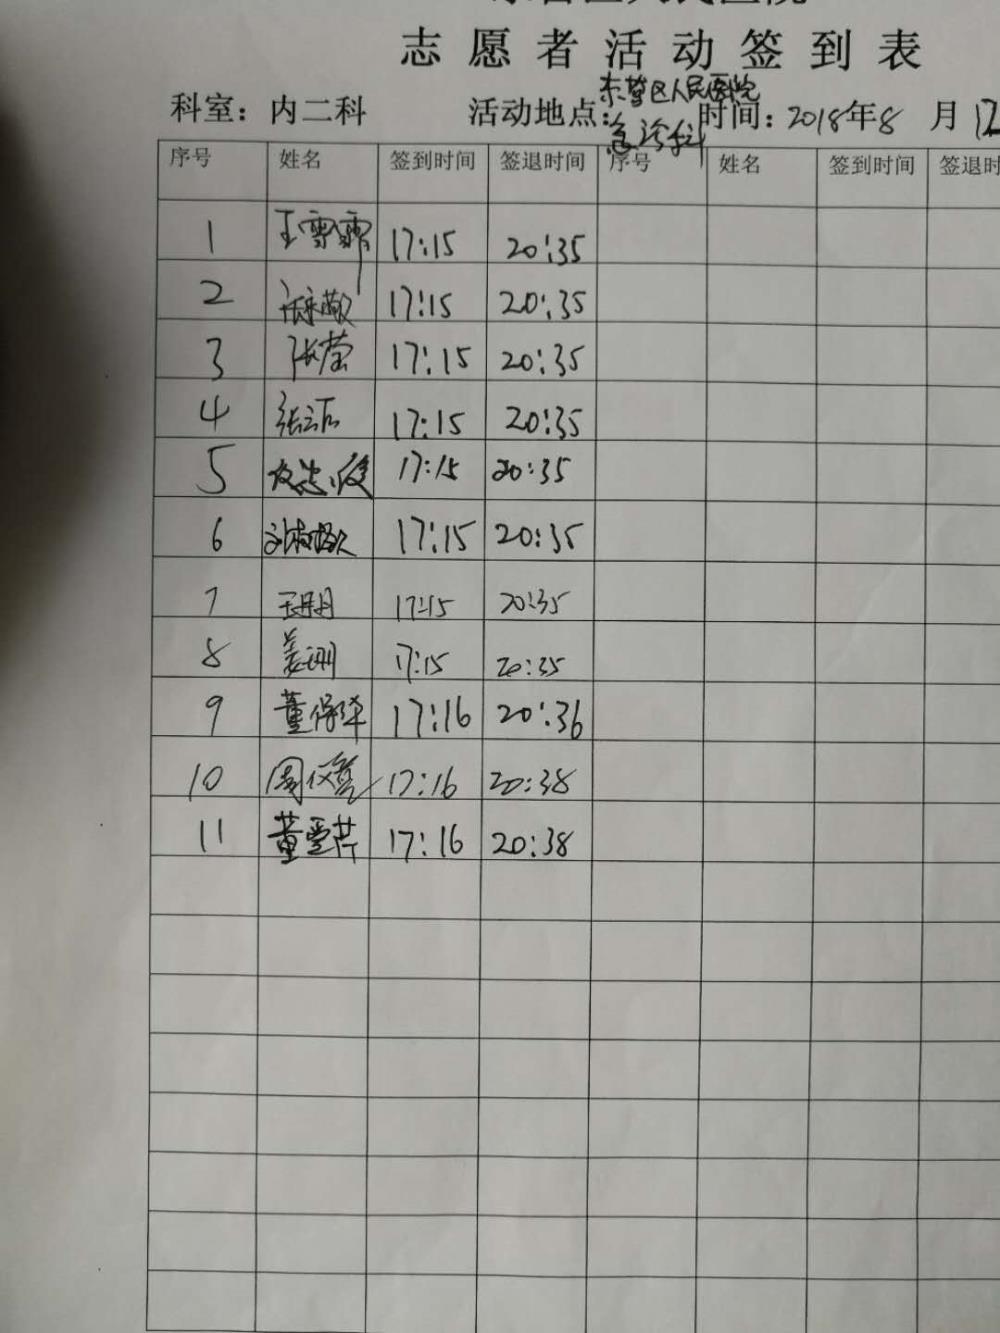 志愿者活动签到表
科室：内二科 活动地点：区人民医院急诊科 时间：2018年8月12
序号 姓名 签到时间 签退时间 序号 姓名 签到时间 签退时
1 17:15 20:35
2 17:15 20:35
3 张莹 17:15 20:35
4 17:15 20:35
5 17:15 20:35
6 17:15 20:35
7 17:15 20:35
8 姜珊 17:15 20:35
9 董保华 17:16 20:36
10 17:16 20:38
11 董雪芹 17:16 20:38